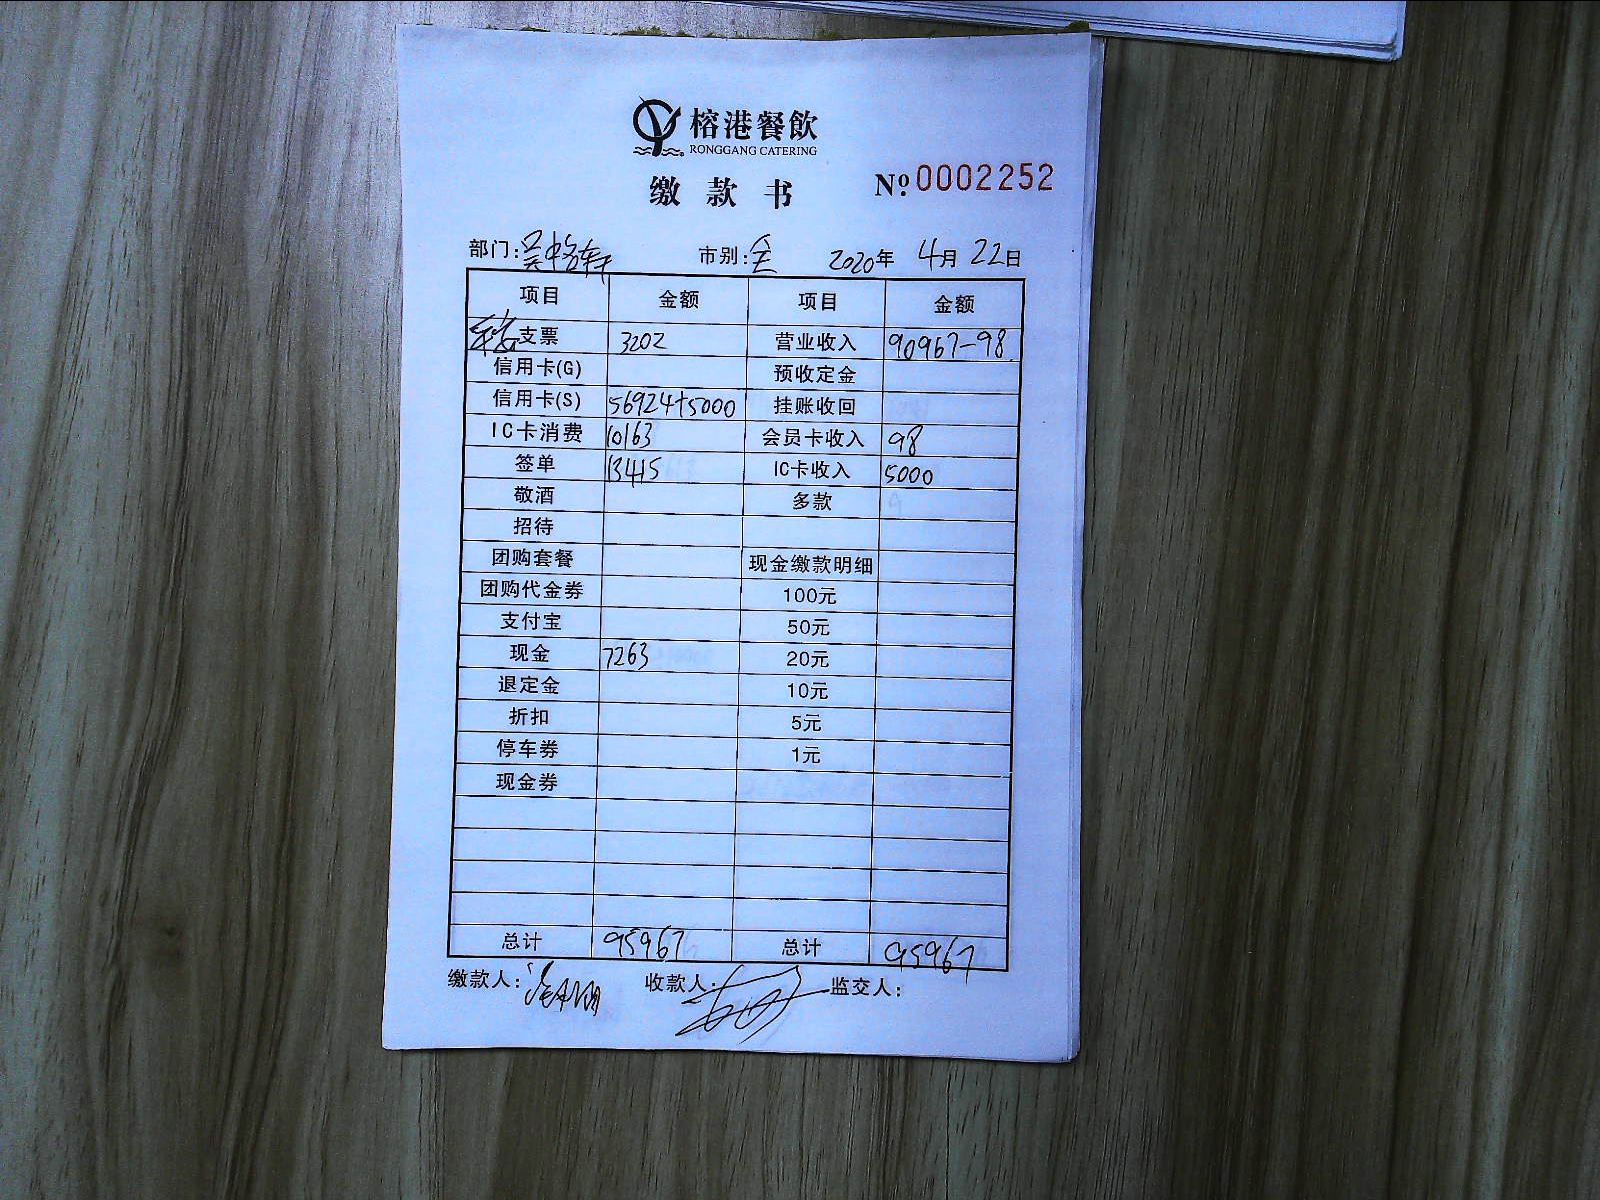 榕港餐飲
RONGGANG CATERING
缴款书
№ 0002252
部门: 市别:全 2020年 4月 22日
项目 金额 项目 金额
支票 3202 营业收入 90967-98
信用卡(G) 预收定金
信用卡(S) 56924+5000 挂账收回
IC卡消费 10163 会员卡收入 98
签单 13415 IC卡收入 5000
敬酒 多款
招待
团购套餐 现金缴款明细
团购代金券 100元
支付宝 50元
现金 7263 20元
退定金 10元
折扣 5元
停车券 1元
现金券
总计 95967 总计 95967
缴款人: 收款人: 监交人: